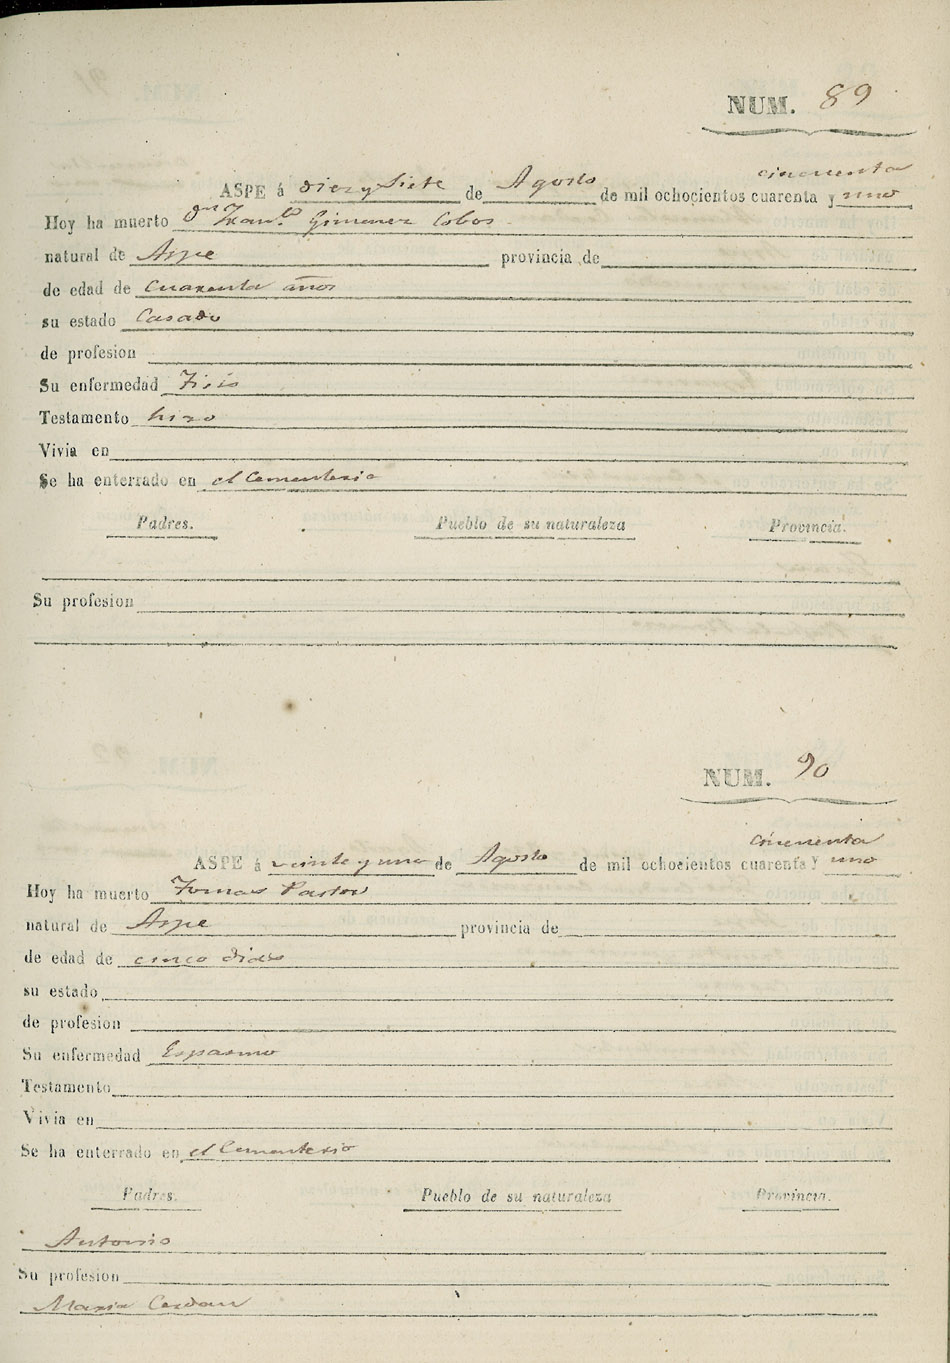 NUM. 89
cincuenta
ASPE á diez y Siete de Agosto de mil ochocientos cuarenta y uno
Hoy ha muerto Dn Franco Gimenez Cobos
natural de Aspe provincia de
de edad de Cuarenta años
su estado Casado
de profesion
Su enfermedad Tisis
Testamento hizo
Vivia en
Se ha enterrado en el Cementerio
Padres. Pueblo de su naturaleza Provincia.
Su profesion
NUM. 90
cincuenta
ASPE á veinte y uno de Agosto de mil ochocientos cuarenta y uno
Hoy ha muerto Tomas Pastor
natural de Aspe provincia de
de edad de cinco dias
su estado
de profesion
Su enfermedad Espasmo
Testamento
Vivia en
Se ha enterrado en el Cementerio
Padres. Pueblo de su naturaleza Provincia.
Antonio
Su profesion
Maria Cerdan